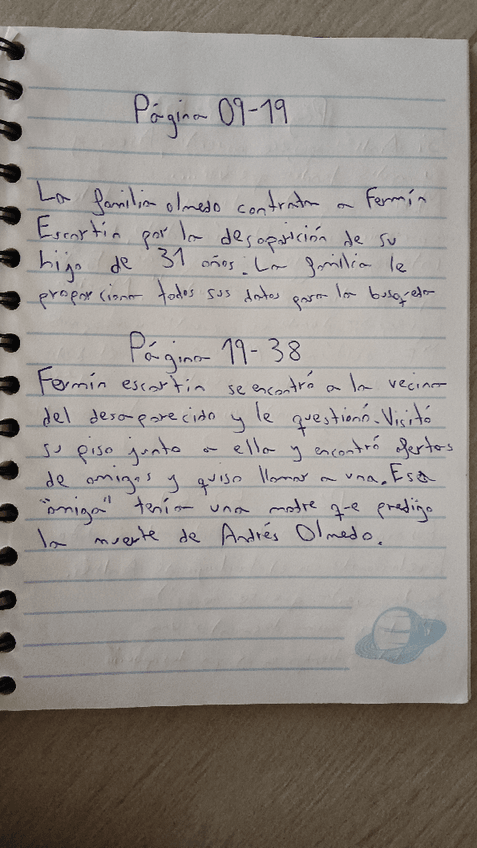 Página 09-19
La familia olmedo contrata a Fermín
Escartín por la desaparición de su
hijo de 31 años. La familia le
proporciona todos sus datos para la busqueda
Página 19-38
Fermín escartin se encontró a la vecina
del desaparecido y le questionó. Visitó
su piso junto a ella y encontró ofertas
de amigas y quiso llamar a una. Esa
"amiga" tenía una madre que predigo
la muerte de Andrés Olmedo.